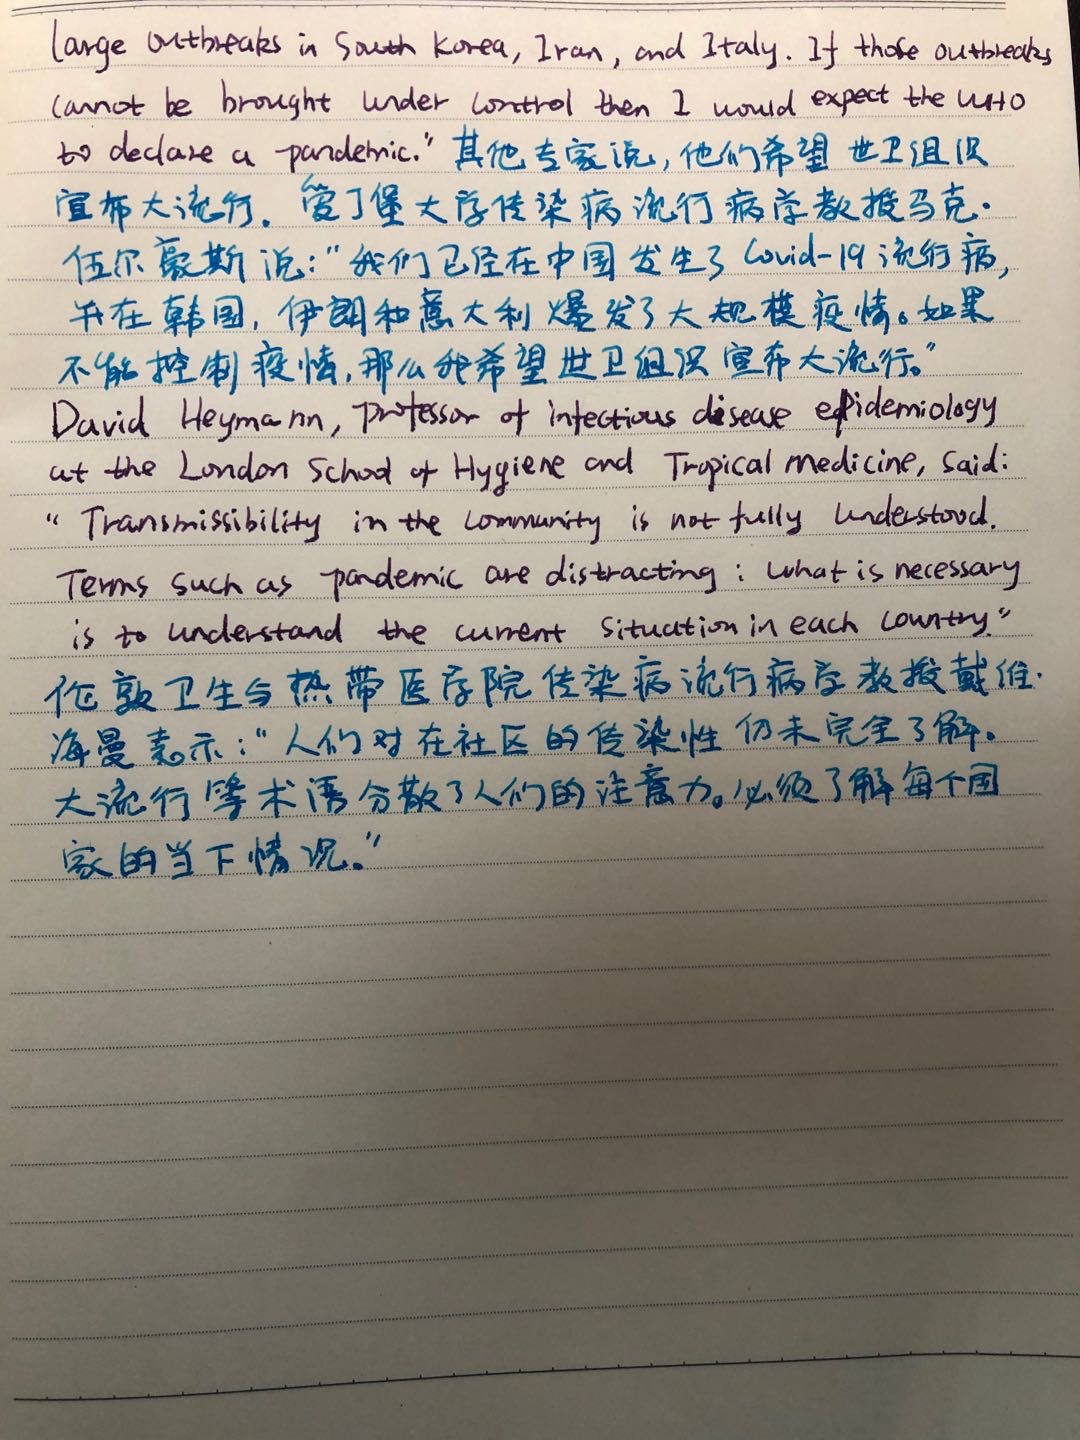 large outbreaks in South Korea, Iran, and Italy. If those outbreaks
cannot be brought under control then I would expect the WHO
to declare a pandemic." 其他专家说,他们希望世卫组织
宣布大流行。爱丁堡大学传染病流行病学教授马克·
伍尔豪斯说:"我们已经在中国发生了Covid-19流行病,
并在韩国,伊朗和意大利爆发了大规模疫情。如果
不能控制疫情,那么我希望世卫组织宣布大流行。"
David Heymann, professor of infectious disease epidemiology
at the London School of Hygiene and Tropical medicine, said:
"Transmissibility in the community is not fully understood.
Terms such as pandemic are distracting: what is necessary
is to understand the current situation in each country."
伦敦卫生与热带医学院传染病流行病学教授戴维·
海曼表示:"人们对在社区的传染性仍未完全了解。
大流行等术语分散了人们的注意力。必须了解每个国
家的当下情况。"